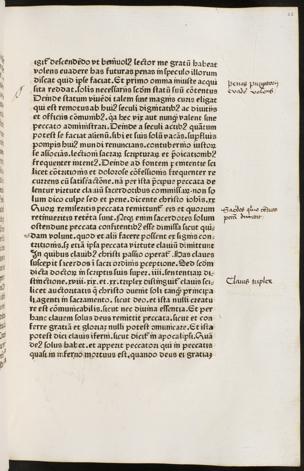 igit descendedo vt beniuol9 lector me gratū habeat
volens euadere has futuras penas in speculo illorum
discat quid ipse faciat. Et primo omnia iniuste acqui
sita reddat. solis necessariis scdm statū suū cōtentus
Deinde statum viuēdi talem sine magnis curis eligat
qui est remotus ab hui9 seculi dignitatib9 ac diuitiis
et officiis cōmunib9. qa hec vix aut nunqȝ valent sine
peccato administrari. Deinde a seculi actib9 quātum
potest se faciat alienū. sibi et suis solū vacās. supfluis
pompis hui9 mundi renuncians. contubernio iustor
se associās. lectionē sacrar scripturar et pdicationū
frequenter intent9. Deinde ad fontem penitentie sci
licet cōtritionis et dolorose cōfessionis frequenter re
currens cū satisfactōne. nā per ista
sentur virtute clauiū sacerdotibus commissar. non so
lum dico culpe sed et pene. dicente christo iohis. xx
Quor remiseritis peccata remittunt eis et quorum
retinueritis retēta sunt. Neqȝ enim sacerdotes solum
ostendunt peccata confitentib9 esse dimissa sicut qui
dam volunt. quod et alii facere possent ex signis con
tritionis. sȝ etiā ipsa peccata virtute clauiū dimittunt
In quibus clauib9 christi passio operat. Has claues
suscepit sacerdos i sacri ordinis pceptione. Vnde scdm
dicta doctor in scriptis suis super. iiii. sententiar di-
stinctōne. xviii. xix. et. xx. triplex distinguit clauis sci
licet auctoritatis q christo ouenit soli tanqȝ principa
li. agenti in sacramento. sicut deo. et ista nulli creatu
re est cōmunicabilis. sicut nec diuina essentia. Et per
hanc clauem solus deus remittit peccata. sicut et con
ferre gratiā et gloriaȝ nulli potest omuicare. Et ista
potest dici clauis iferni. sicut dicit in apocalipsi. Quā
de9 solus habet. et apperit peccatori qui in peccatis
quasi in inferno mortuus est. quando deus ei gratiaȝ
Clauis triplex